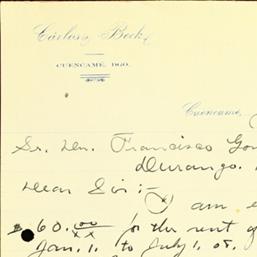 Carlos Beck,
CUENCAMÉ, DGO.
Cuencamé,
Sr. Dn. Francisco Gon
Durango.
Dear Sir:—
I am e
$60.00/xx for the rent of
Jan. 1. to July 1. 08.